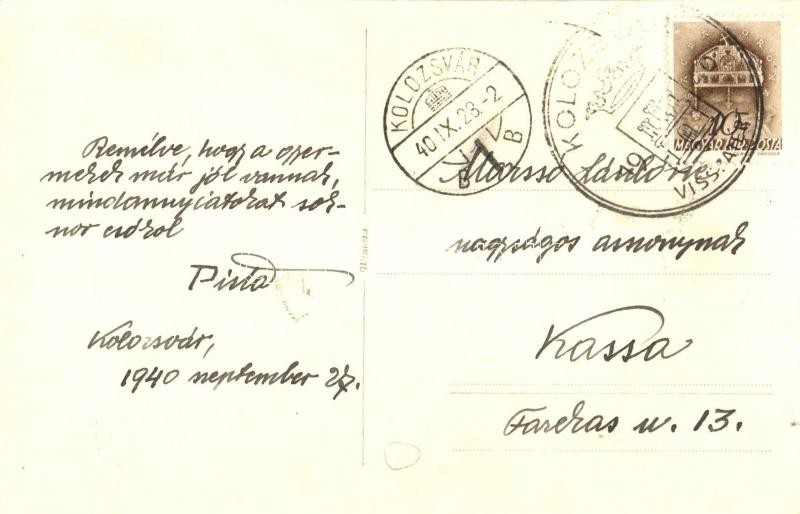 Remélve, hogy a gyer-
mekek már jól vannak,
mindannyiatokat sok-
szor csókol
Pista
Kolozsvár,
1940 szeptember 27.
KOLOZSVÁR
40 IX. 28.-2
B
KOLOZSVÁR
19
VISSZATÉRT
10
MAGYAR KIR. POSTA
nagyságos asszonynak
Kassa
Farkas u. 13.